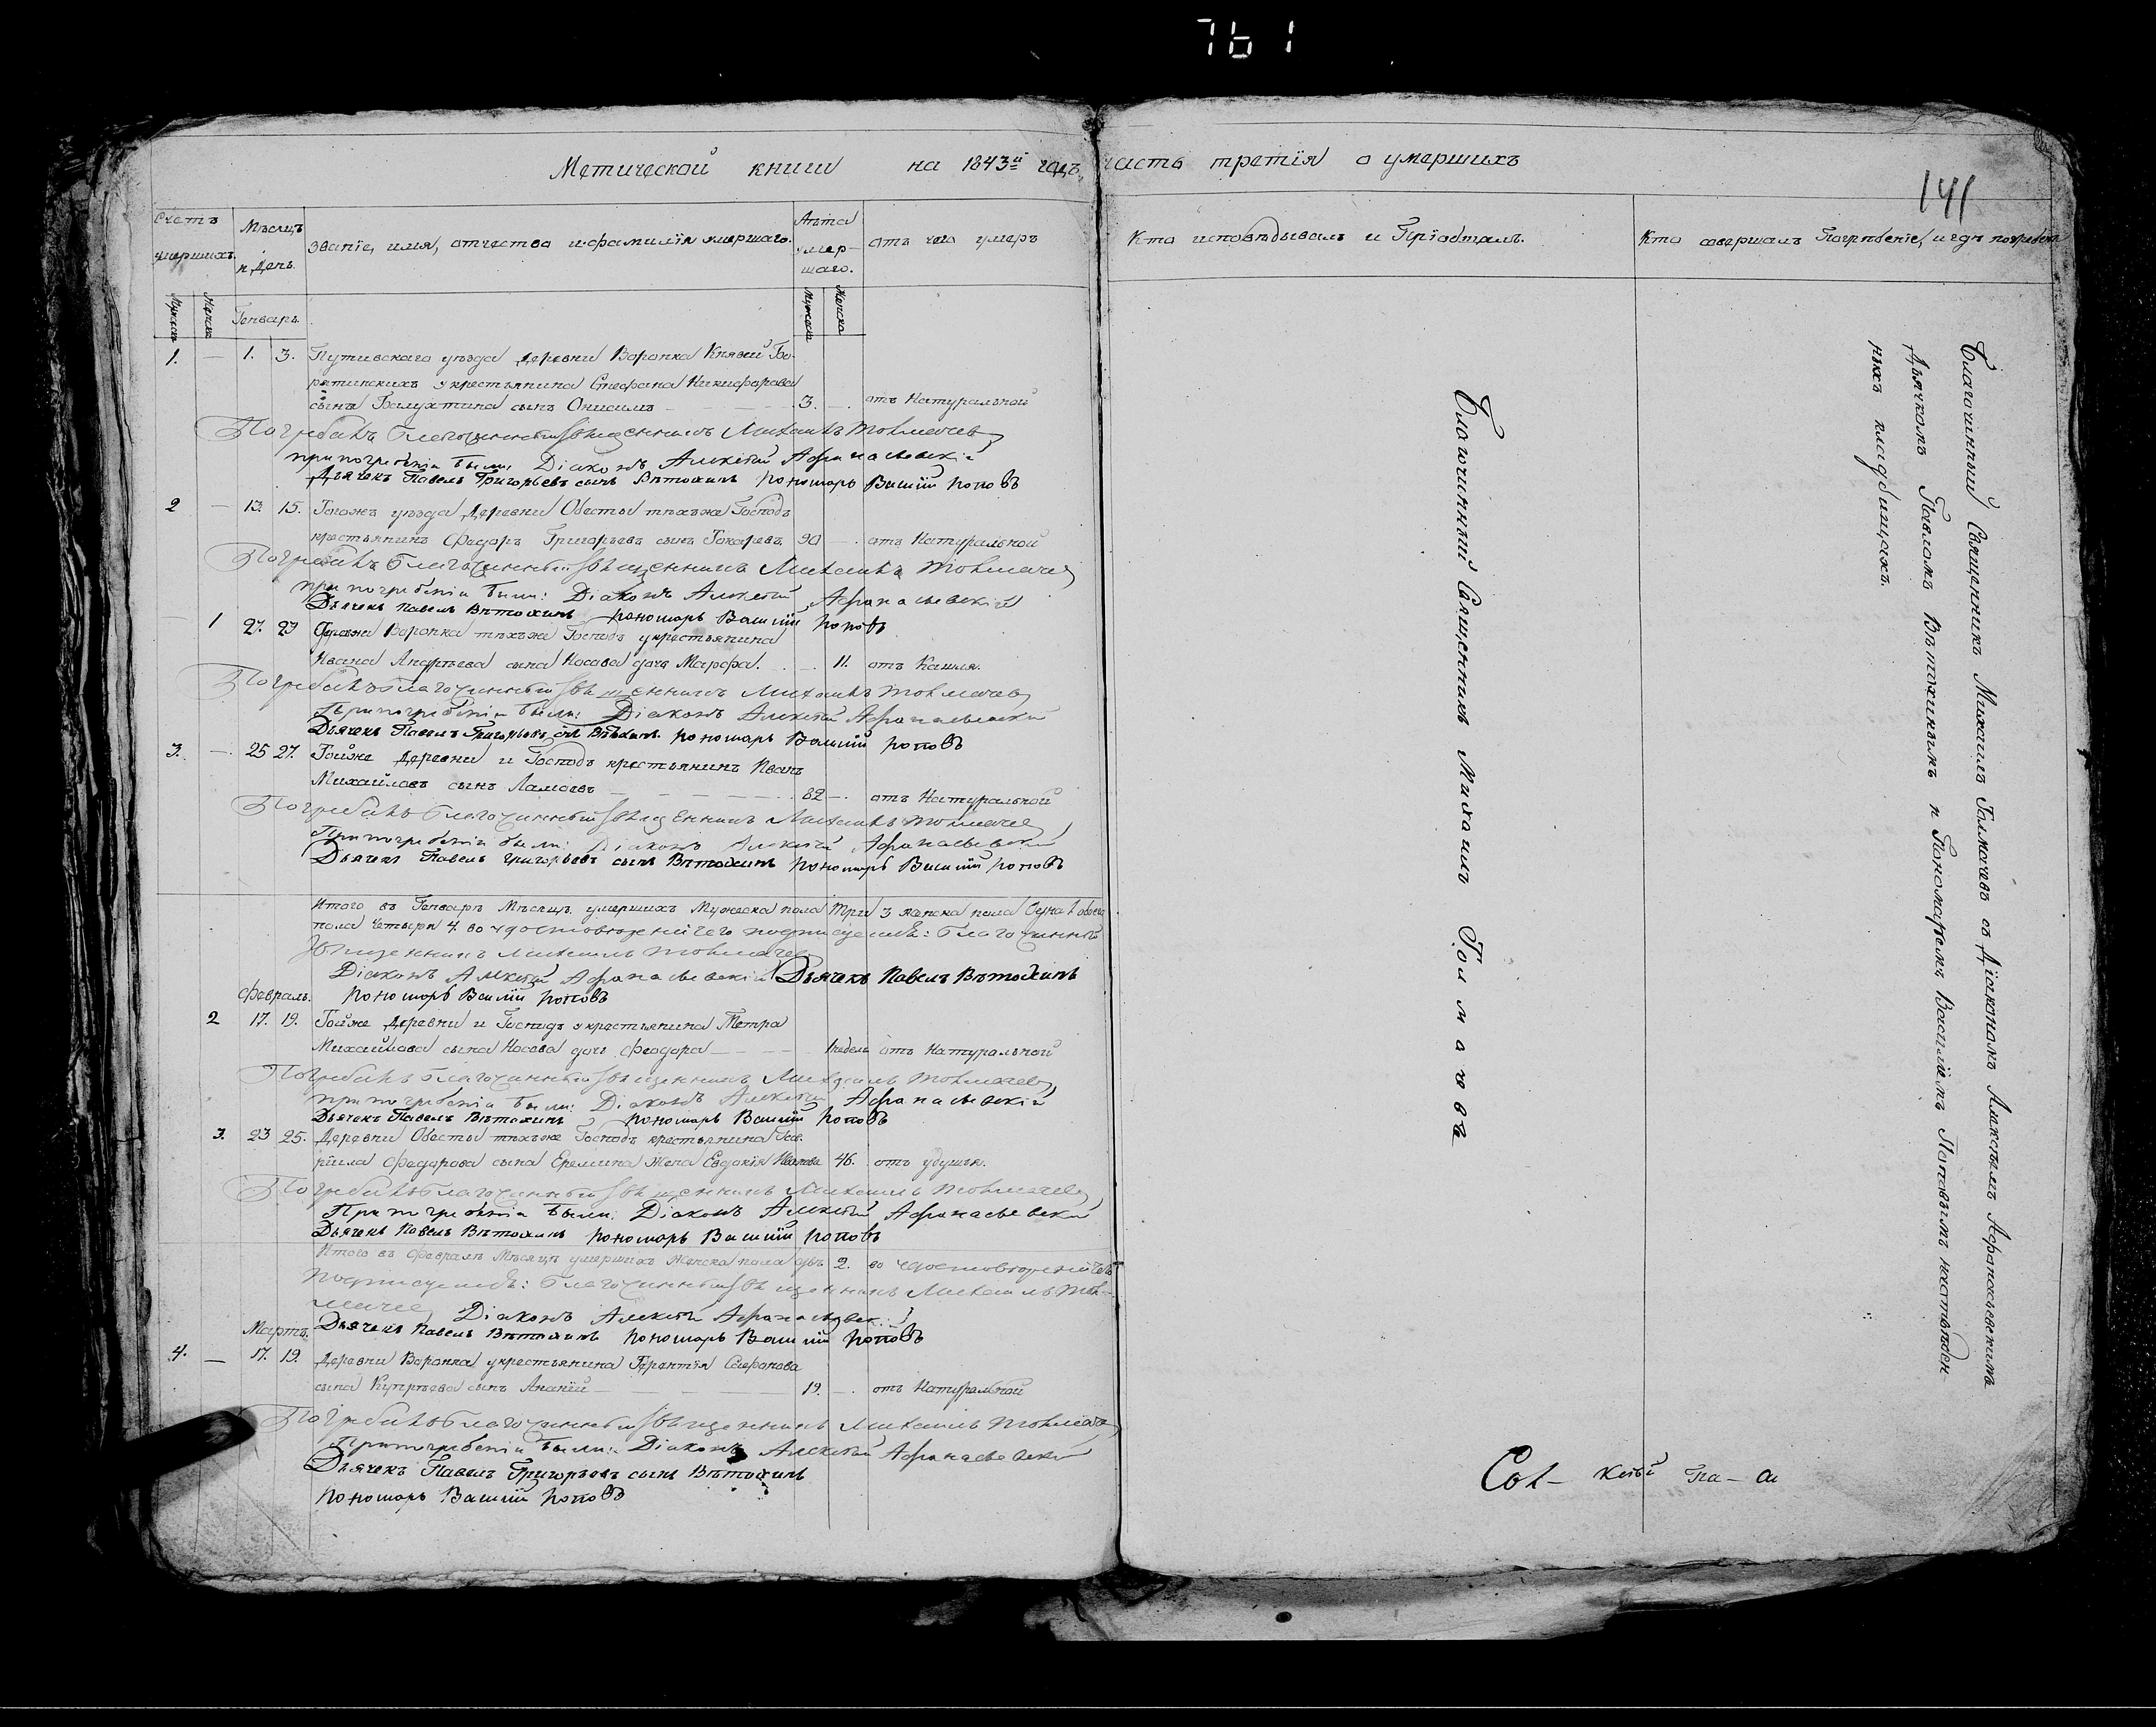 761
Метической книги на 1843й годъ, часть третія о умершихъ
141
Счетъ умершихъ.
Мѣсяцъ и День.
званіе, имя, отчество и фамилія умершаго.
Лѣта умер-
шаго.
отъ чего умеръ
Кто исповѣдывалъ и Пріобщалъ.
Кто совершалъ Погребеніе, и гдѣ погребенъ
Мужеска
Женска
Генварь.
Мужеска
Женска
1. — 1. 3. Путивскаго уѣзда деревни Воронка Князей Бо-
рятинскихъ у крестьянина Стефана Никифорова
сына Балухтина сынъ Онисимъ — 3. — отъ Натуральной
Погребалъ благочинный священникъ Михаилъ Толмачев
при погребеніи были: Діаконъ Алексѣй Афанасьевскій
Дьячекъ Павелъ Григорьевъ сынъ Вѣтохинъ пономарь Василій Поповъ
2 — 13. 15. Тогожъ уѣзда Деревни Обесты тѣхъже Господъ
крестьянинъ Федоръ Григорьевъ сынъ Токаревъ 90 — отъ Натуральной
Погребалъ благочинный священникъ Михаилъ Толмачев
при погребеніи были: Діаконъ Алексѣй Афанасьевскій
Дьячекъ Павелъ Вѣтохинъ пономарь Василій Поповъ
— 1 27. 29 Воронка тѣхъже Господъ укрестьянина
Ивана Андрѣева сына Носова дочь Марфа. — 11. отъ Кашля.
Погребалъ благочинный священникъ Михаилъ Толмачев
При погребеніи были: Діаконъ Алексѣй Афанасьевскій
Дьячекъ Павелъ Григорьевъ сынъ Вѣтохинъ пономарь Василій Поповъ
3. — 25 27. Тойже Деревни и Господъ крестьянинъ Иванъ
Михайловъ сынъ — 82 — отъ Натуральной
Погребалъ благочинный священникъ Михаилъ Толмачев
При погребеніи были: Діаконъ Алексѣй Афанасьевскій
Дьячекъ Павелъ Григорьевъ сынъ Вѣтохинъ пономарь Василій Поповъ
Итого въ Генварѣ Мѣсяцѣ умершихъ Мужеска пола три 3 женска пола Одна 1 обоего
пола четыри 4. во чемъ подписуемся: благочинный
священникъ Михаилъ Толмачев
Діаконъ Алексѣй Афанасьевскій Дьячекъ Павелъ Вѣтохинъ
Февраль. пономарь Василій Поповъ
2 17. 19. Тойже Деревни и Господъ укрестьянина Петра
Михайлова сына Носова дочь Феодора — 1 недели отъ Натуральной
Погребалъ благочинный священникъ Михаилъ Толмачев
при погребеніи были: Діаконъ Алексѣй Афанасьевскій
Дьячекъ Павелъ Вѣтохинъ пономарь Василій Поповъ
3. 23 25. Деревни Обесты тѣхъже Господъ крестьянина Гав-
ріила Федорова сына Еремина жена Евдокія Иванова 46. отъ удушья.
Погребалъ благочинный священникъ Михаилъ Толмачев
При погребеніи были: Діаконъ Алексѣй Афанасьевскій
Дьячекъ Павелъ Вѣтохинъ пономарь Василій Поповъ
Итого въ Февралѣ Мѣсяцѣ умершихъ Женска пола двѣ 2. во
подписуемся: благочинный священникъ Михаилъ Тол-
мачев Діаконъ Алексѣй Афанасьевскій
Мартъ. Дьячекъ Павелъ Вѣтохинъ пономарь Василій Поповъ
4. — 17. 19. Деревни Воронка укрестьянина Терентія
сына сынъ Ананій — 19. — отъ Натуральной
Погребалъ благочинный священникъ Михаилъ Толмачев
При погребеніи были: Діаконъ Алексѣй Афанасьевскій
Дьячекъ Павелъ Григорьевъ сынъ Вѣтохинъ
пономарь Василій Поповъ
Благочинный Священникъ Михаилъ Толмачовъ
Благочинный Священникъ Михаилъ Толмачевъ съ Діакономъ Алексѣемъ Афанасьевскимъ
Дьячкомъ Павломъ Вѣтохинымъ и Пономаремъ Василіемъ Поповымъ
кладбищахъ.